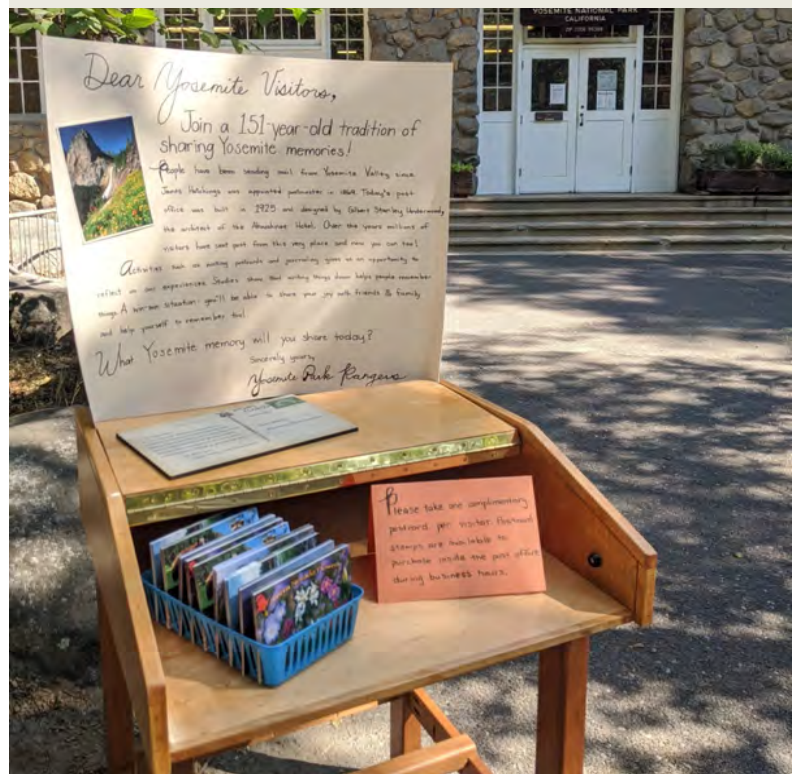 YOSEMITE NATIONAL PARK
CALIFORNIA
Dear Yosemite Visitors,
Join a 151-year-old tradition of
sharing Yosemite memories!
People have been sending mail from Yosemite Valley since
James Hutchings was appointed postmaster in 1869. Today's post
office was built in 1925 and designed by Gilbert Stanley Underwood,
the architect of the Ahwahnee Hotel. Over the years millions of
visitors have sent post from this very place and now you can too!
Activities such as writing postcards and journaling gives us an opportunity to
reflect on our experiences. Studies show that writing things down helps people remember
things. A win-win situation - you'll be able to share your joy with friends & family
and help yourself to remember too!
What Yosemite memory will you share today?
Sincerely yours,
Yosemite Park Rangers
Please take one complimentary
postcard per visitor. Postcard
stamps are available to
purchase inside the post office
during business hours.